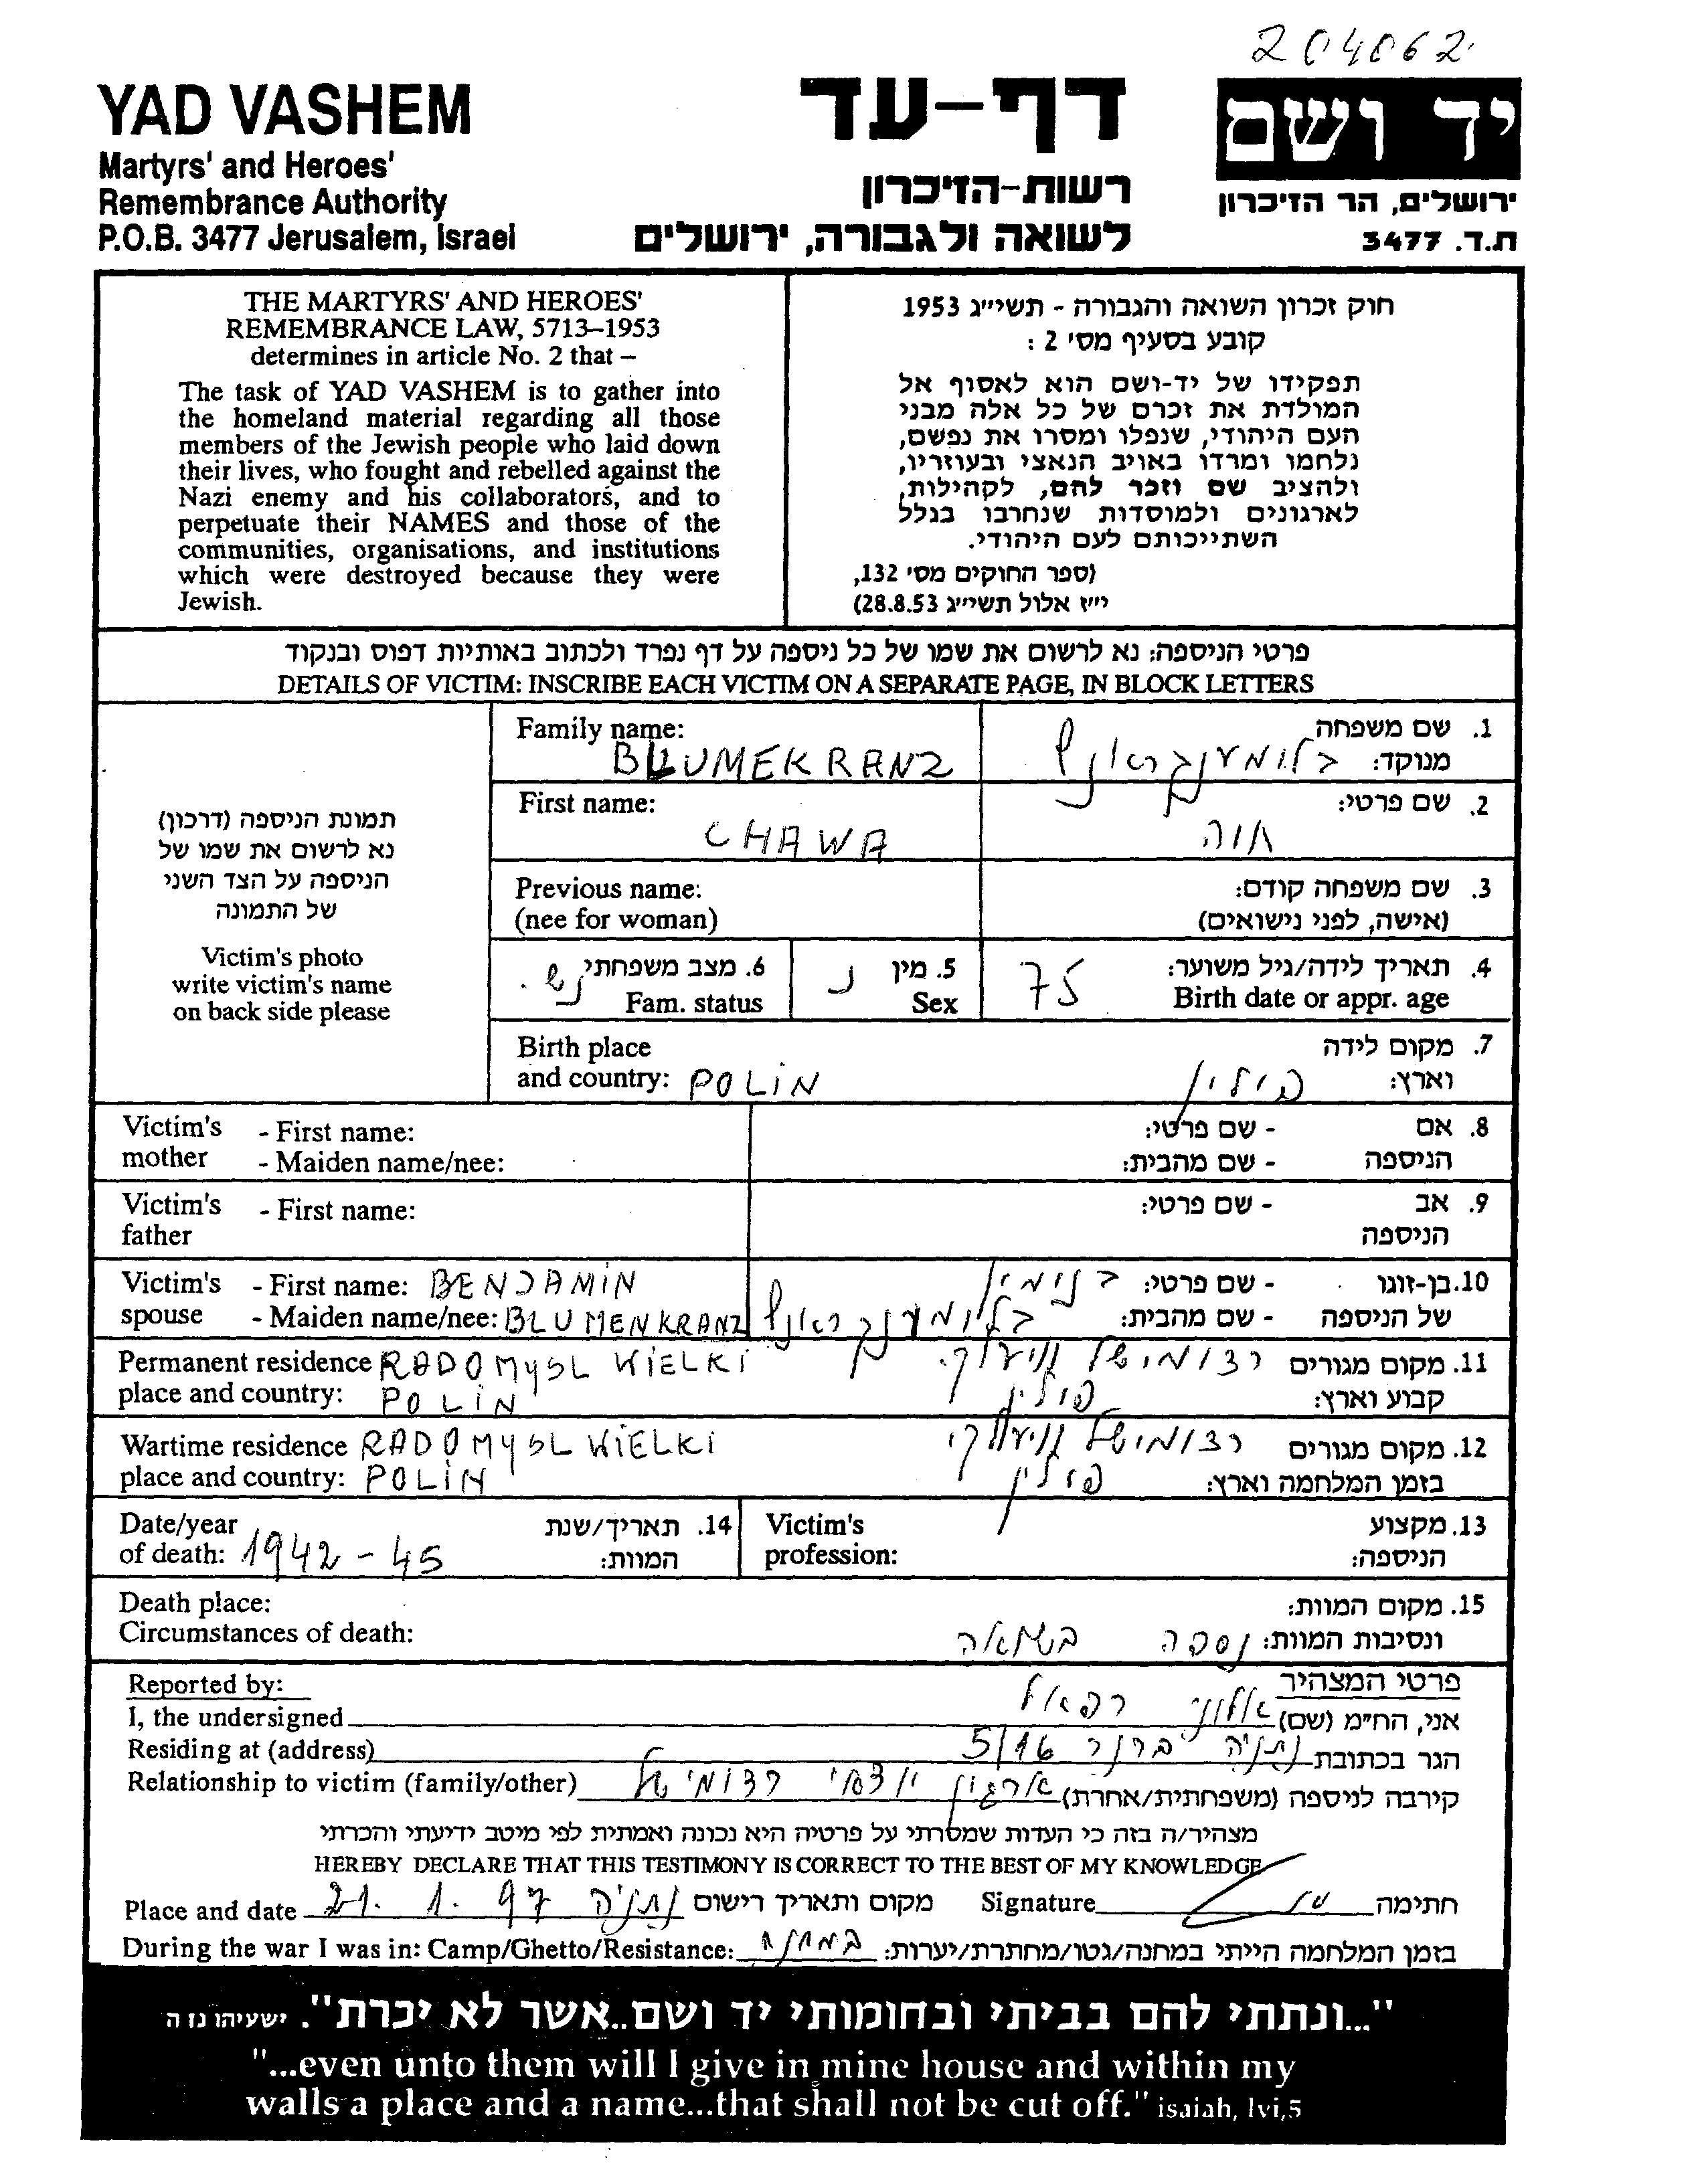 204062
YAD VASHEM
Martyrs' and Heroes'
Remembrance Authority
P.O.B. 3477 Jerusalem, Israel
דף-עד
רשות-הזיכרון
לשואה ולגבורה, ירושלים
יד ושם
ירושלים, הר הזיכרון
ת.ד. 3477
THE MARTYRS' AND HEROES'
REMEMBRANCE LAW, 5713–1953
determines in article No. 2 that –
The task of YAD VASHEM is to gather into
the homeland material regarding all those
members of the Jewish people who laid down
their lives, who fought and rebelled against the
Nazi enemy and his collaborators, and to
perpetuate their NAMES and those of the
communities, organisations, and institutions
which were destroyed because they were
Jewish.
חוק זכרון השואה והגבורה - תשי״ג 1953
קובע בסעיף מס׳ 2 :
תפקידו של יד-ושם הוא לאסוף אל
המולדת את זכרם של כל אלה מבני
העם היהודי, שנפלו ומסרו את נפשם,
נלחמו ומרדו באויב הנאצי ובעוזריו,
ולהציב שם וזכר להם, לקהילות,
לארגונים ולמוסדות שנחרבו בגלל
השתייכותם לעם היהודי.
(ספר החוקים מס׳ 132,
י״ז אלול תשי״ג 28.8.53)
פרטי הניספה: נא לרשום את שמו של כל ניספה על דף נפרד ולכתוב באותיות דפוס ובנקוד
DETAILS OF VICTIM: INSCRIBE EACH VICTIM ON A SEPARATE PAGE, IN BLOCK LETTERS
תמונת הניספה (דרכון)
נא לרשום את שמו של
הניספה על הצד השני
של התמונה
Victim's photo
write victim's name
on back side please
Family name: 1. שם משפחה
BLUMEKRANZ בלומענקראנץ מנוקד:
First name: 2. שם פרטי:
CHAWA חוה
Previous name: 3. שם משפחה קודם:
(nee for woman) (אישה, לפני נישואים)
6. מצב משפחתי נש. 5. מין נ 4. תאריך לידה/גיל משוער:
Fam. status Sex 75 Birth date or appr. age
Birth place 7. מקום לידה
and country: POLIN פולין וארץ:
Victim's - First name: 8. אם - שם פרטי:
mother - Maiden name/nee: הניספה - שם מהבית:
Victim's - First name: 9. אב - שם פרטי:
father הניספה
Victim's - First name: BENJAMIN 10. בן-זוגו - שם פרטי: בנימין
spouse - Maiden name/nee: BLUMENKRANZ של הניספה - שם מהבית: בלומענקראנץ
Permanent residence RADOMYSL WIELKI 11. מקום מגורים רדומישל וויעלקי.
place and country: POLIN קבוע וארץ: פולין
Wartime residence RADOMYSL WIELKI 12. מקום מגורים רדומישל וויעלקי
place and country: POLIN בזמן המלחמה וארץ: פולין
Date/year 14. תאריך/שנת Victim's 13. מקצוע
of death: 1942 - 45 המוות: profession: הניספה:
Death place: 15. מקום המוות:
Circumstances of death: ונסיבות המוות: נספה בשואה
Reported by: פרטי המצהיר
I, the undersigned אני, החי״מ (שם) אלוני רפאל
Residing at (address) הגר בכתובת נתניה ברנר 5/16
Relationship to victim (family/other) קירבה לניספה (משפחתית/אחרת) ארגון יוצאי רדומישל
מצהיר/ה בזה כי העדות שמסרתי על פרטיה היא נכונה ואמתית לפי מיטב ידיעתי והכרתי
HEREBY DECLARE THAT THIS TESTIMONY IS CORRECT TO THE BEST OF MY KNOWLEDGE
Place and date 21. 1. 97 נתניה מקום ותאריך רישום Signature חתימה
During the war I was in: Camp/Ghetto/Resistance: במחנה בזמן המלחמה הייתי במחנה/גטו/מחתרת/יערות:
"...ונתתי להם בביתי ובחומותי יד ושם..אשר לא יכרת". ישעיהו נז ה
"...even unto them will I give in mine house and within my
walls a place and a name...that shall not be cut off." isaiah, lvi,5